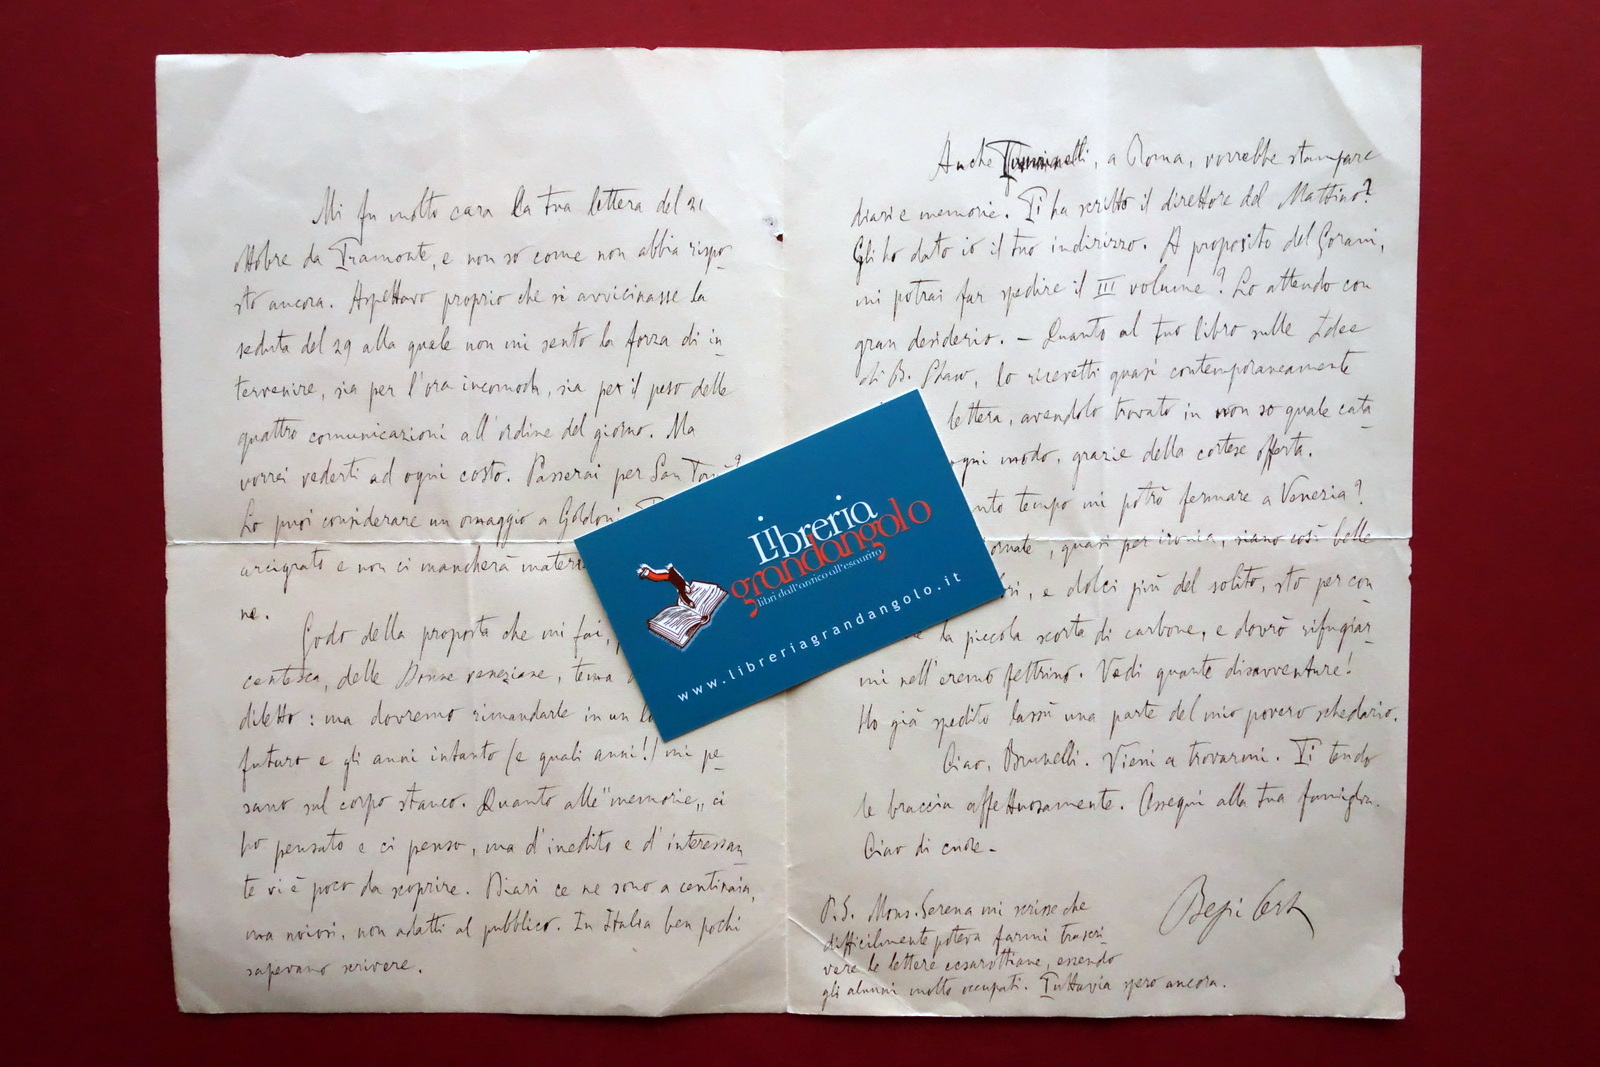 Mi fu molto cara la tua lettera del 21
ottobre da Tramonte, e non so come non abbia rispo-
sto ancora. Aspettavo proprio che si avvicinasse la
seduta del 29 alla quale non mi sento la forza di in-
tervenire, sia per l'ora incomoda, sia per il peso delle
quattro comunicazioni all'ordine del giorno. Ma
vorrei vederti ad ogni costo. Passerai per San Tomà?
Lo puoi considerare un omaggio a Goldoni.
arcigrato e non ci mancherà
ne.
Godo della proposta che mi fai,
centesca, delle Donne veneziane, tema
diletto: ma dovremo rimandarle in un
futuro e gli anni intanto (e quali anni!) mi pe-
sano sul corpo stanco. Quanto alle "memorie„ ci
ho pensato e ci penso, ma d'inedito e d'interessan-
te vi è poco da scoprire. Diari ce ne sono a centinaia,
ma noiosi, non adatti al pubblico. In Italia ben pochi
sapevano scrivere.
Anche Tumminelli, a Roma, vorrebbe stampare
diari e memorie. Ti ha scritto il direttore del Mattino?
Gli ho dato io il tuo indirizzo. A proposito del Gorani,
mi potrai far spedire il III volume? Lo attendo con
gran desiderio. — Quanto al tuo libro sulle Idee
di B. Shaw, lo ricevetti quasi contemporaneamente
lettera, avendolo trovato in non so quale cata-
ogni modo, grazie della cortese offerta.
tempo mi potrò fermare a Venezia?
quasi per ironia, siano così belle
e dolci più del solito, sto per con
la piccola scorta di carbone, e dovrò rifugiar-
mi nell'eremo feltrino. Vedi quante disavventure!
Ho già spedito lassù una parte del mio povero schedario.
Ciao, Brunelli. Vieni a trovarmi. Ti tendo
le braccia affettuosamente. Ossequi alla tua famiglia.
Ciao di cuore -
P.S. Mons. Serena mi scrisse che
difficilmente poteva farmi trascri-
vere le lettere cesarottiane, essendo
gli alunni molto occupati. Tuttavia spero ancora.
Libreria
grandangolo
libri dall'antico all'esaurito
www.libreriagrandangolo.it